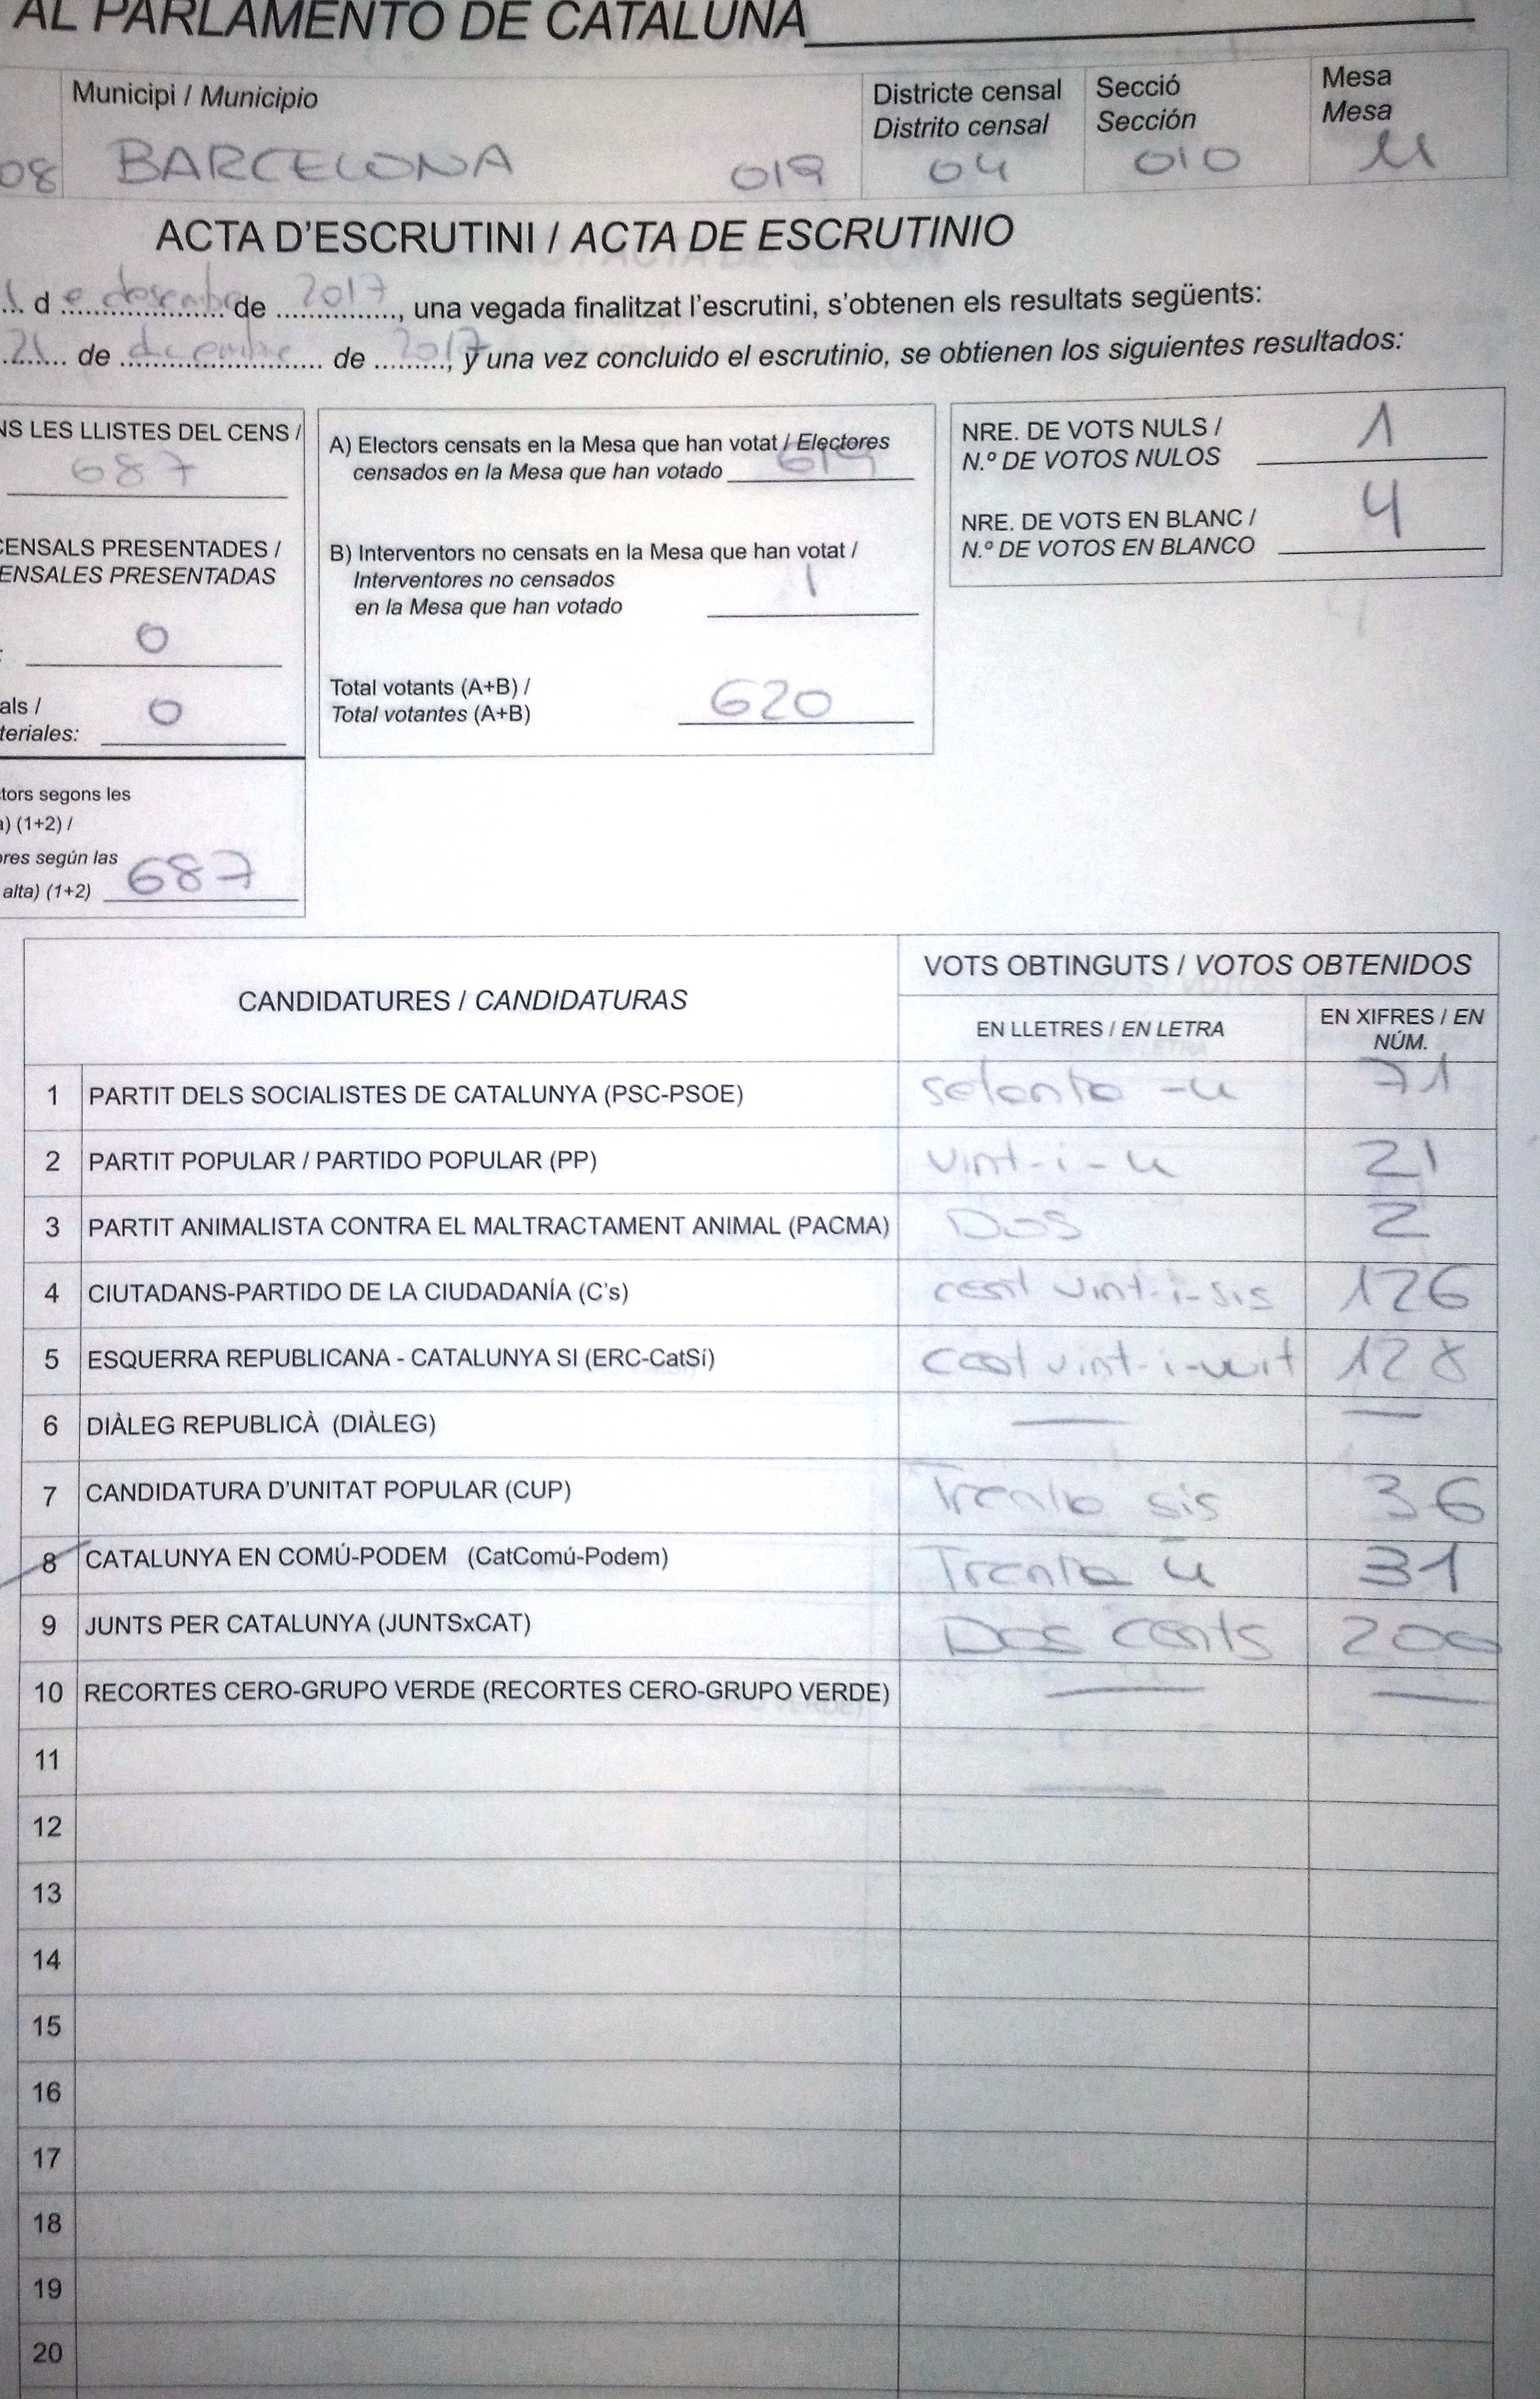 AL PARLAMENTO DE CATALUÑA
Municipi / Municipio
Districte censal
Distrito censal
Secció
Sección
Mesa
Mesa
08 BARCELONA 019 04 010 U
ACTA D'ESCRUTINI / ACTA DE ESCRUTINIO
d e desembre de 2017, una vegada finalitzat l'escrutini, s'obtenen els resultats següents:
21 de diciembre de 2017, y una vez concluido el escrutinio, se obtienen los siguientes resultados:
NS LES LLISTES DEL CENS /
687
CENSALS PRESENTADES /
ENSALES PRESENTADAS
0
als /
teriales: 0
tors segons les
a) (1+2) /
ores según las
alta) (1+2) 687
A) Electors censats en la Mesa que han votat / Electores
censados en la Mesa que han votado 619
B) Interventors no censats en la Mesa que han votat /
Interventores no censados
en la Mesa que han votado 1
Total votants (A+B) /
Total votantes (A+B) 620
NRE. DE VOTS NULS /
N.º DE VOTOS NULOS 1
NRE. DE VOTS EN BLANC /
N.º DE VOTOS EN BLANCO 4
CANDIDATURES / CANDIDATURAS
VOTS OBTINGUTS / VOTOS OBTENIDOS
EN LLETRES / EN LETRA
EN XIFRES / EN
NÚM.
1 PARTIT DELS SOCIALISTES DE CATALUNYA (PSC-PSOE) setanta -u 71
2 PARTIT POPULAR / PARTIDO POPULAR (PP) vint-i-u 21
3 PARTIT ANIMALISTA CONTRA EL MALTRACTAMENT ANIMAL (PACMA) Dos 2
4 CIUTADANS-PARTIDO DE LA CIUDADANÍA (C's) cent vint-i-sis 126
5 ESQUERRA REPUBLICANA - CATALUNYA SI (ERC-CatSí) cent vint-i-vuit 128
6 DIÀLEG REPUBLICÀ (DIÀLEG) — —
7 CANDIDATURA D'UNITAT POPULAR (CUP) Trenta sis 36
8 CATALUNYA EN COMÚ-PODEM (CatComú-Podem) Trenta u 31
9 JUNTS PER CATALUNYA (JUNTSxCAT) Dos cents 200
10 RECORTES CERO-GRUPO VERDE (RECORTES CERO-GRUPO VERDE) — —
11
12
13
14
15
16
17
18
19
20